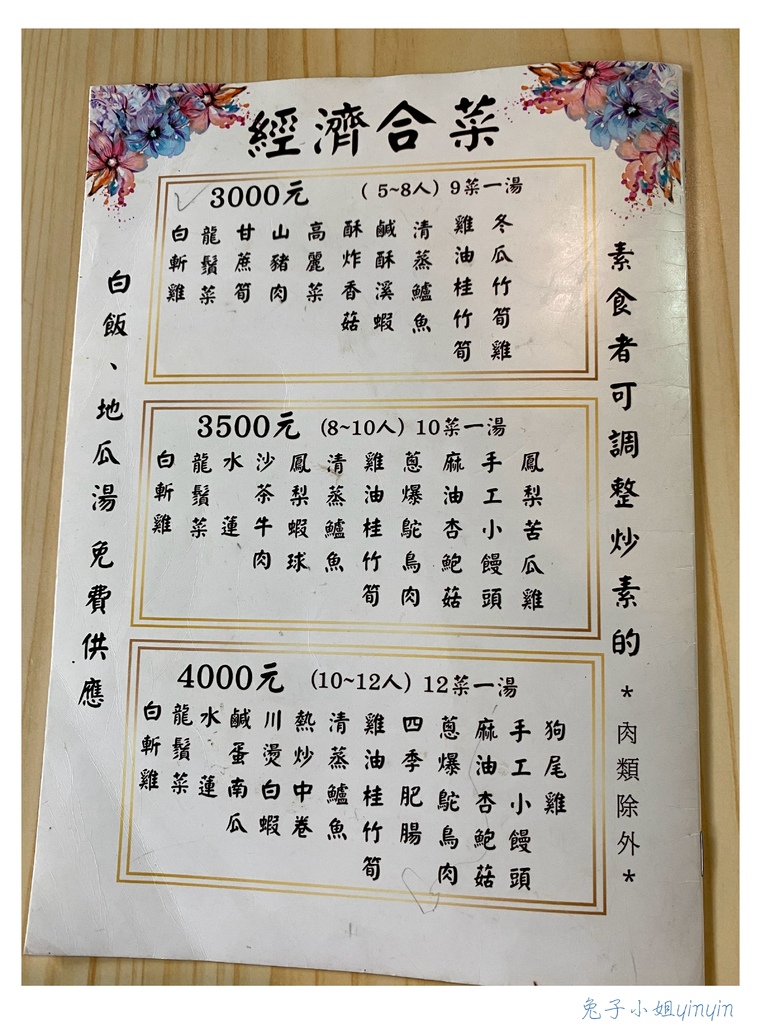 經濟合菜
3000元 (5~8人) 9菜一湯
白斬雞
龍鬚菜
甘蔗筍
山豬肉
高麗菜
酥炸香菇
鹹酥溪蝦
清蒸鱸魚
雞油桂竹筍
冬瓜竹筍雞
3500元 (8~10人) 10菜一湯
白斬雞
龍鬚菜
水蓮
沙茶牛肉
鳳梨蝦球
清蒸鱸魚
雞油桂竹筍
蔥爆鴕鳥肉
麻油杏鮑菇
手工小饅頭
鳳梨苦瓜雞
4000元 (10~12人) 12菜一湯
白斬雞
龍鬚菜
水蓮
鹹蛋南瓜
川燙白蝦
熱炒中卷
清蒸鱸魚
雞油桂竹筍
四季肥腸
蔥爆鴕鳥肉
麻油杏鮑菇
手工小饅頭
狗尾雞
白飯、地瓜湯免費供應
素食者可調整炒素的*肉類除外*
兔子小姐yinyin